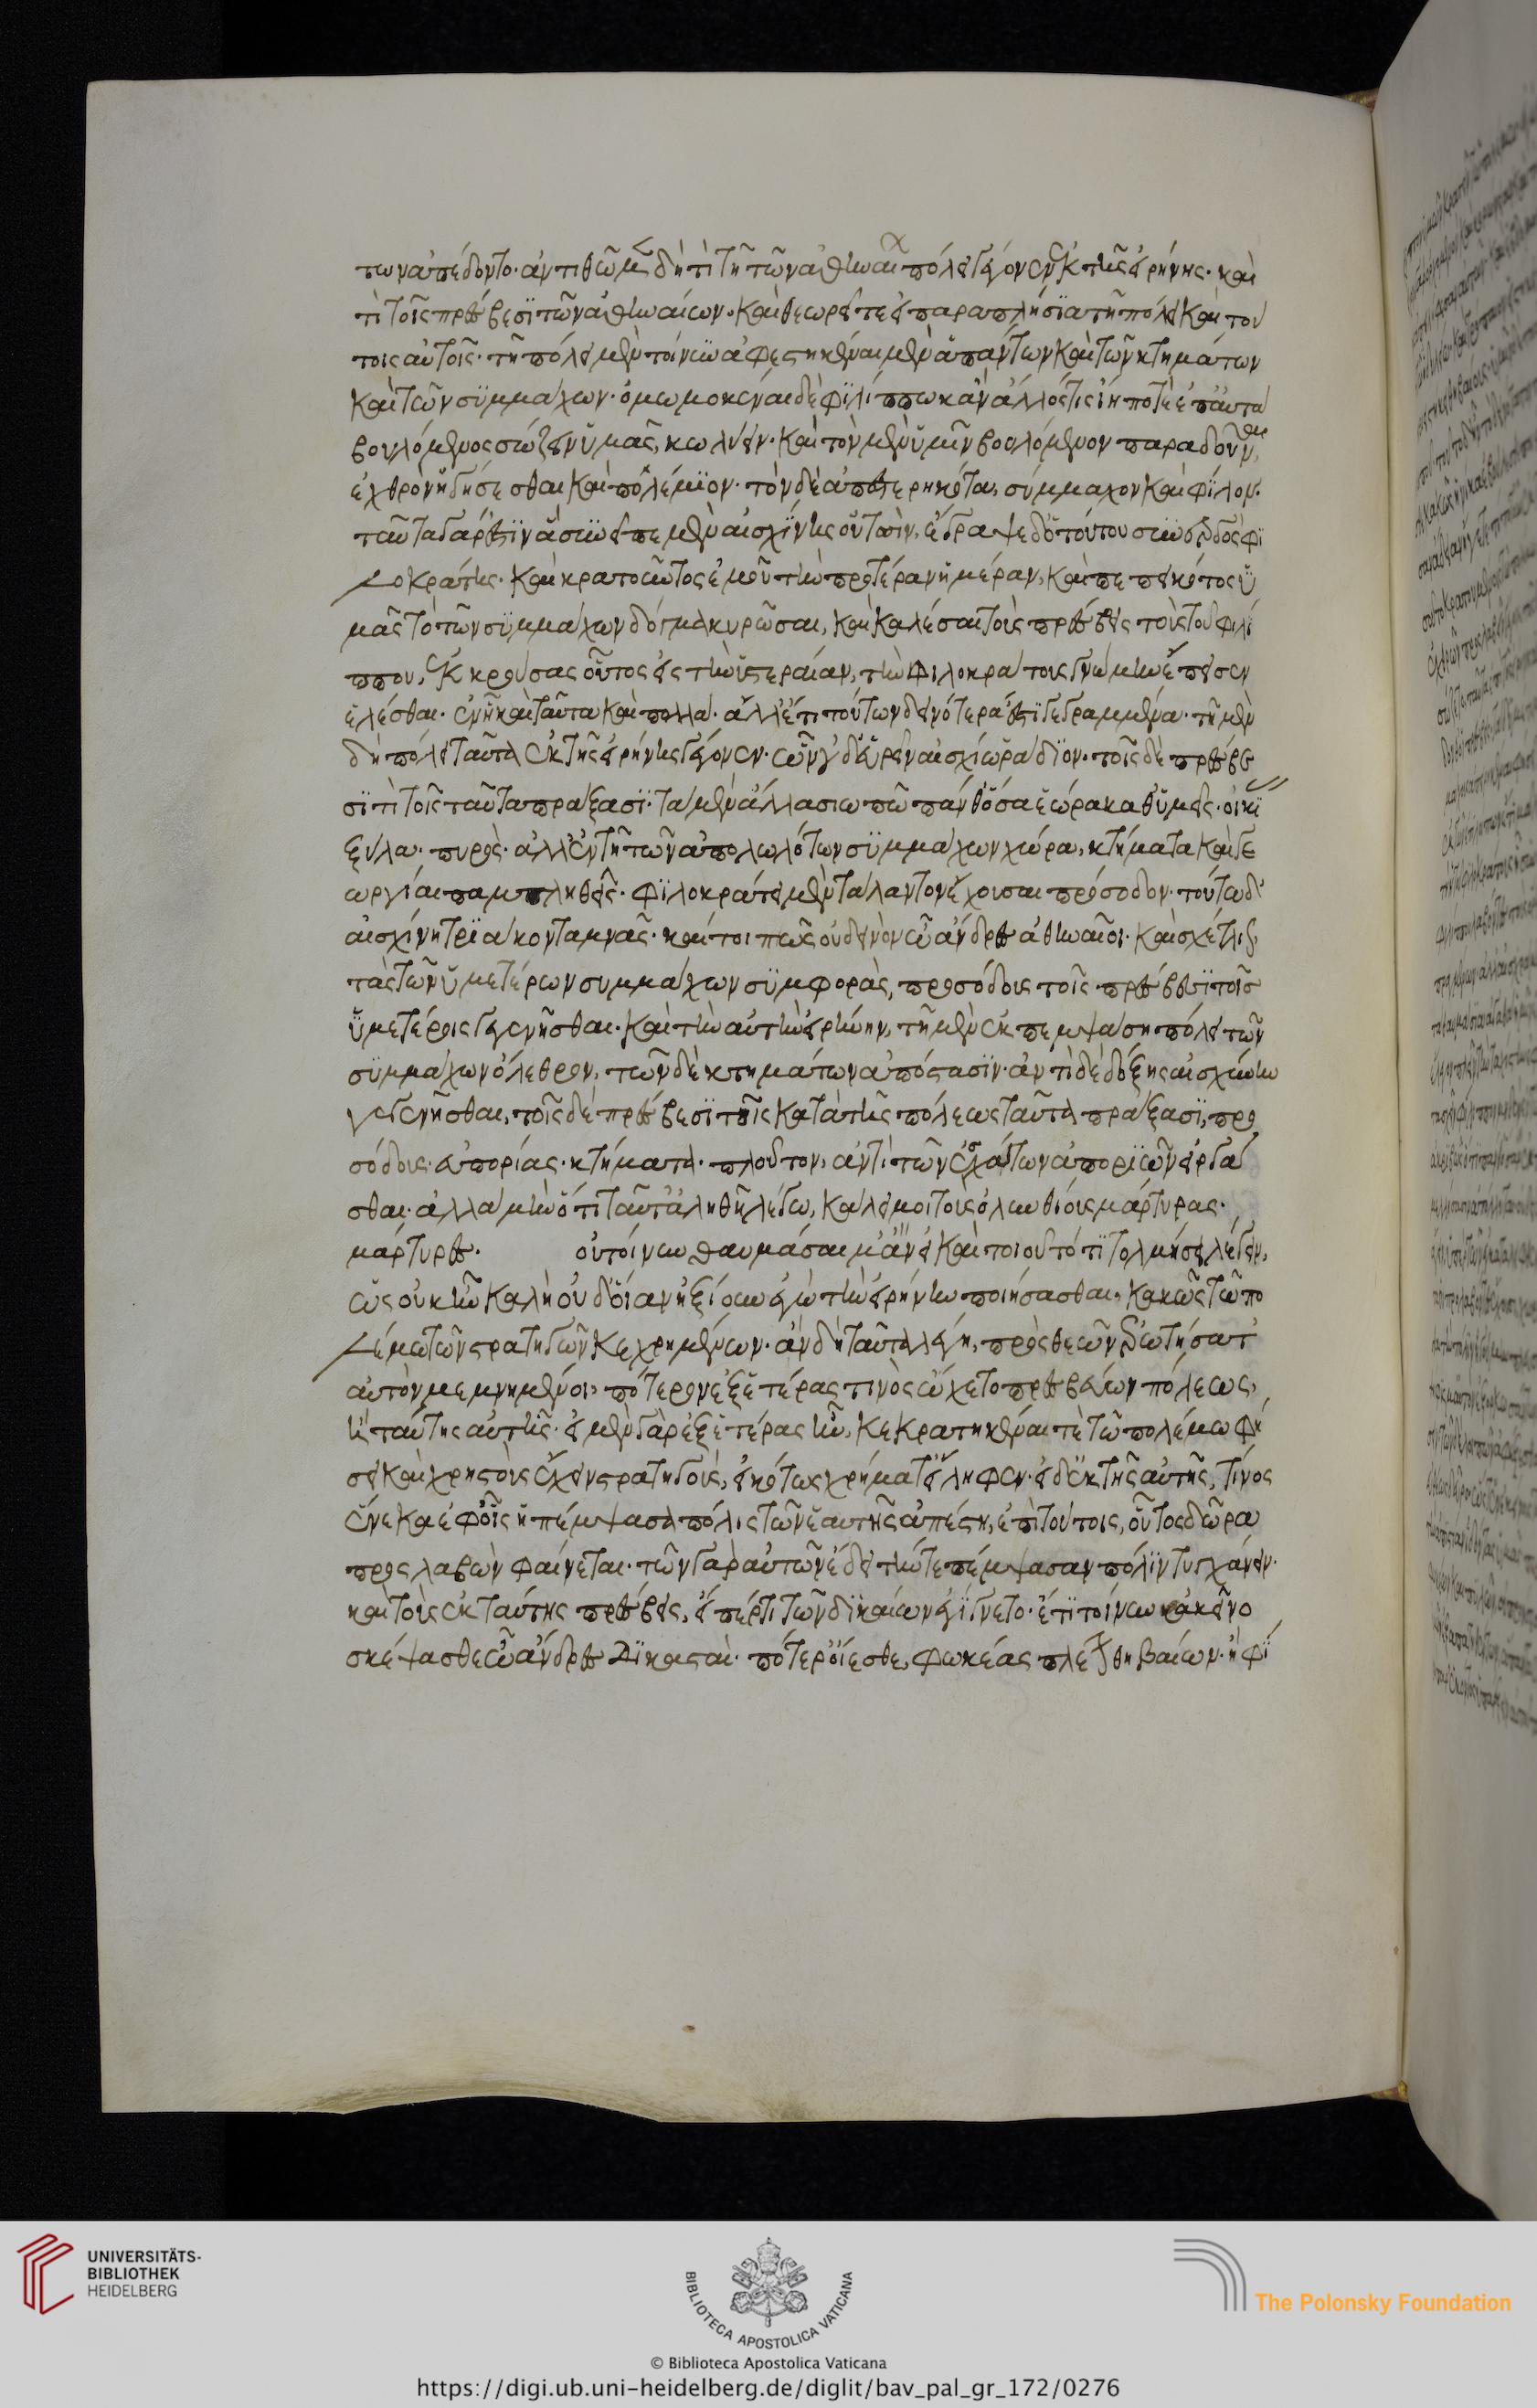 των απέδοντο· ἀντιθῶμεν δὴ τί τῇ τῶν ἀθηναίων πόλει γέγονεν ἐκ τῆς εἰρήνης· καὶ
τί τοῖς πρέσβεσϊ τῶν ἀθηναίων. καὶ θεωρεῖτε εἰ παραπλήσϊα τῆ πόλει καὶ τού
τοις αὐτοῖς· τῆ πόλει μὲν τοίνυν ἀφεστηκέναι μὲν ἁπάντων καὶ τῶν κτημάτων
καὶ τῶν συμμάχων· ὀμωμοκέναι δὲ φϊλίππω κἀν ἄλλός τις ἴη ποτὲ ἐπ' αὐτὰ
βουλόμενος σώζειν ὑμᾶς, κωλύειν· καὶ τὸν μὲν ὑμῖν βουλόμενον παραδοῦναι,
ἐχθρὸν ἡγήσεσθαι καὶ πολέμϊον· τὸν δὲ ἀπεστερηκότα, σύμμαχον καὶ φίλον.
ταῦτα γάρ ἐστϊν ἃ συνεῖπε μὲν αἰσχίνης οὑτοσὶν, ἔγραψε δ' ὁ τούτου συνεργὸς φϊ
λοκράτης· καὶ κρατοῦντος ἐμοῦ τὴν προτέραν ἡμέραν, καὶ πεπεικότος ὑ
μᾶς τὸ τῶν συμμάχων δόγμα κυρῶσαι, καὶ καλέσαι τοὺς πρέσβεις τοὺς τοῦ φιλί
ππου, ἐκκρούσας οὗτος εἰς τὴν ὑστεραίαν, τὴν φιλοκράτους γνώμην ἔπεισεν
ἑλέσθαι· ἐν ἧ καὶ ταῦτα καὶ πολλὰ· ἄλλ' ἔτι τούτων δεινότερα ἐστϊ γεγραμμένα· τῆ μὲν
δὴ πόλει ταῦτα ἐκ τῆς εἰρήνης γέγονεν· ὧν γ' οὐδ' εὑρεῖν αἰσχίω ῥάδϊον· τοῖς δὲ πρέσβε
σϊ τὶ τοῖς ταῦτα πράξασϊ· τὰ μὲν ἄλλα σιωπῶ πάνθ' ὅσα ἑωράκαθ' ὑμεῖς· οἰκί
ξύλα· πυρὸς· ἀλλ' ἐν τῆ τῶν ἀπολωλότων συμμάχων χώρα, κτήματα καὶ γε
ωργίαι παμπληθεῖς· φϊλοκράτει μὲν τάλαντον ἔχουσαι πρόσοδον· τούτω δ'
αἰσχίνη τρϊάκοντα μνᾶς· καίτοι πῶς οὐ δεινὸν ὦ ἄνδρες ἀθηναῖοι· καὶ σχέτλιον,
τὰς τῶν ὑμετέρων συμμάχων συμφορὰς, προσόδους τοῖς πρέσβεσϊ τοῖς
ὑμετέροις γεγενῆσθαι· καὶ τὴν αὐτὴν εἰρήνην, τῆ μὲν ἐκπεμψάση πόλει τῶν
συμμάχων ὄλεθρον, τῶν δὲ κτημάτων ἀπόστασϊν· ἀντὶ δὲ δόξης αἰσχύνην
γεγενῆσθαι, τοῖς δὲ πρέσβεσϊ τοῖς κατὰ τῆς πόλεως ταῦτα πράξασϊ, προ
σόδους· εὐπορίας· κτήματα· πλοῦτον, ἀντὶ τῶν ἐσχάτων ἀπορϊῶν εἰργά
σθαι· ἀλλὰ μὴν ὅτι ταῦτ' ἀληθῆ λέγω, κάλει μοι τοὺς ὀλυνθίους μάρτυρας.
μάρτυρες. οὐ τοίνυν θαυμάσαιμ' ἂν εἰ καὶ τοιοῦτό τϊ τολμήσει λέγειν,
ὡς οὐκ ἦν καλὴ οὐδ' οἵαν ἠξίουν ἐγὼ τὴν εἰρήνην ποιήσασθαι, κακῶς τῶ πο
λέμω τῶν στρατηγῶν κεχρημένων· ἂν δὴ ταῦτα λέγη, πρὸς θεῶν ἐρωτήσατ'
αὐτὸν μεμνημένοι, πότερον ἐξ ἑτέρας τινὸς ὤχετο πρεσβεύων πόλεως,
ἢ ταύτης αὐτῆς· εἰ μὲν γὰρ ἐξ ἑτέρας ἣν, κεκρατηκέναι τὲ τῶ πολέμω φή
σει καὶ χρηστοὺς ἔχειν στρατηγοὺς, εἰκότως χρήματ' εἴληφεν· εἰ δ' ἐκ τῆς αὐτῆς, τίνος
ἕνεκα ἐφ' οἷς ἡ πέμψασα πόλις τῶν ἑαυτῆς ἀπέστη, ἐπὶ τούτοις, οὗτος δῶρα
προς λαβὼν φαίνεται· τῶν γὰρ αὐτῶν ἔδει τήν τε πέμψασαν πόλϊν τυγχάνειν·
καὶ τοὺς ἐκ ταύτης πρέσβεις, εἴπέρ τι τῶν δϊκαίων ἐγίγνετο· ἔτϊ τοίνυν κἀκεῖνο
σκέψασθε ὦ ἄνδρες δϊκασταὶ· πότερ' οἴεσθε, φωκέας πλέον θηβαίων· ἢ φϊ
UNIVERSITÄTS-
BIBLIOTHEK
HEIDELBERG
BIBLIOTECA APOSTOLICA VATICANA
The Polonsky Foundation
© Biblioteca Apostolica Vaticana
https://digi.ub.uni-heidelberg.de/diglit/bav_pal_gr_172/0276